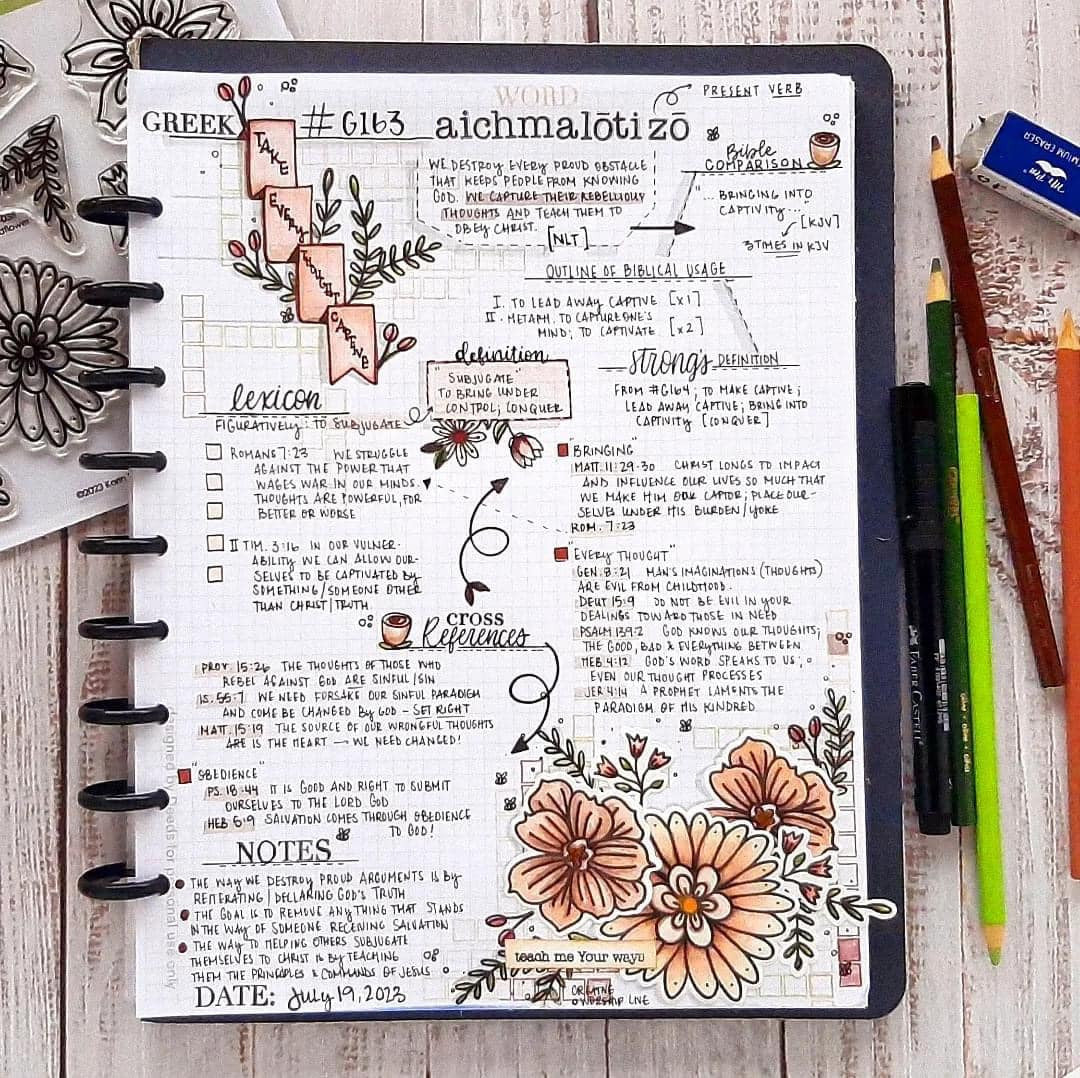 WORD
PRESENT VERB
GREEK #G163 aichmalōtizō
TAKE
EVERY
THOUGHT
CAPTIVE
WE DESTROY EVERY PROUD OBSTACLE
THAT KEEPS PEOPLE FROM KNOWING
GOD. WE CAPTURE THEIR REBELLIOUS
THOUGHTS AND TEACH THEM TO
OBEY CHRIST.
[NLT]
Bible
COMPARISON
"... BRINGING INTO
CAPTIVITY...
[KJV]
3 TIMES IN KJV
OUTLINE OF BIBLICAL USAGE
I. TO LEAD AWAY CAPTIVE [x1]
II. METAPH. TO CAPTURE ONE'S
MIND; TO CAPTIVATE [x2]
definition
"SUBJUGATE"
TO BRING UNDER
CONTROL; CONQUER
strong's DEFINITION
FROM #G164; TO MAKE CAPTIVE;
LEAD AWAY CAPTIVE; BRING INTO
CAPTIVITY [CONQUER]
lexicon
FIGURATIVELY: TO SUBJUGATE
ROMANS 7:23 WE STRUGGLE
AGAINST THE POWER THAT
WAGES WAR IN OUR MINDS.
THOUGHTS ARE POWERFUL, FOR
BETTER OR WORSE
II TIM. 3:16 IN OUR VULNER-
ABILITY WE CAN ALLOW OUR-
SELVES TO BE CAPTIVATED by
SOMETHING/SOMEONE OTHER
THAN CHRIST/TRUTH.
"BRINGING"
MATT. 11:29-30 CHRIST LONGS TO IMPACT
AND INFLUENCE OUR LIVES SO MUCH THAT
WE MAKE HIM OUR CAPTOR; PLACE OUR-
SELVES UNDER HIS BURDEN/YOKE
ROM. 7:23
"EVERY THOUGHT"
GEN. 8:21 MAN'S IMAGINATIONS (THOUGHTS)
ARE EVIL FROM CHILDHOOD.
DEUT 15:9 DO NOT BE EVIL IN YOUR
DEALINGS TOWARD THOSE IN NEED
PSALM 139:2 GOD KNOWS OUR THOUGHTS;
THE GOOD, BAD & EVERYTHING BETWEEN
HEB 4:12 GOD'S WORD SPEAKS TO US;
EVEN OUR THOUGHT PROCESSES
JER 4:14 A PROPHET LAMENTS THE
PARADIGM OF HIS KINDRED
CROSS
References
PROV. 15:26 THE THOUGHTS OF THOSE WHO
REBEL AGAINST GOD ARE SINFUL/SIN
IS. 55:7 WE NEED FORSAKE OUR SINFUL PARADIGM
AND COME BE CHANGED By GOD - SET RIGHT
MATT. 15:19 THE SOURCE OF OUR WRONGFUL THOUGHTS
ARE IS THE HEART → WE NEED CHANGED!
"OBEDIENCE"
PS. 18:44 IT IS GOOD AND RIGHT TO SUBMIT
OURSELVES TO THE LORD GOD
HEB 5:9 SALVATION COMES THROUGH OBEDIENCE
TO GOD!
NOTES
• THE WAY WE DESTROY PROUD ARGUMENTS IS By
REITERATING/DECLARING GOD'S TRUTH
• THE GOAL IS TO REMOVE ANYTHING THAT STANDS
IN THE WAY OF SOMEONE RECEIVING SALVATION
• THE WAY TO HELPING OTHERS SUBJUGATE
THEMSELVES TO CHRIST IS By TEACHING
THEM THE PRINCIPLES & COMMANDS OF JESUS
DATE: July 19, 2023
teach me Your ways
WORSHIP LIVE
personal use only
©2023
FABER CASTELL